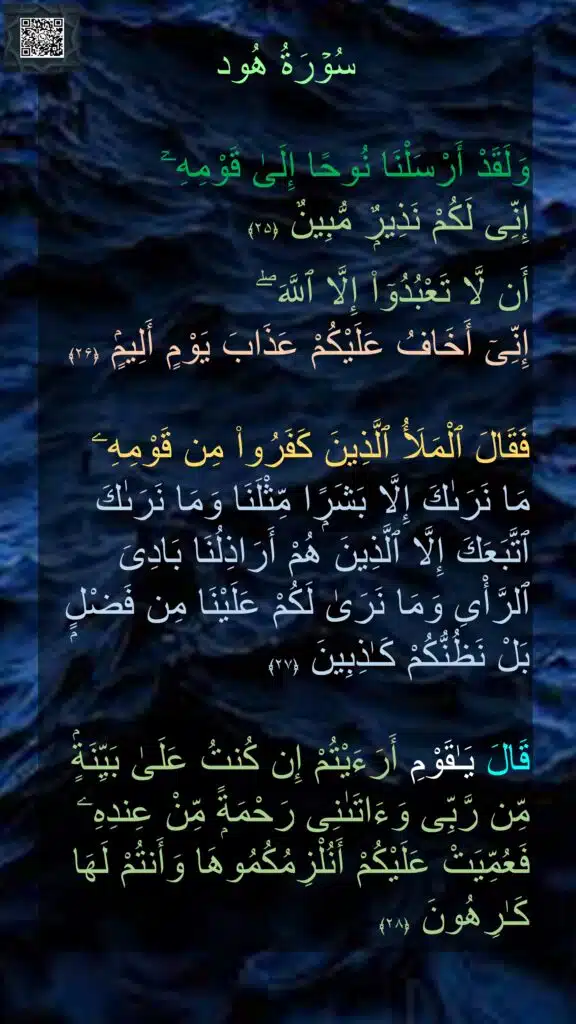 سُوۡرَةُ هُود
وَلَقَدْ أَرْسَلْنَا نُوحًا إِلَىٰ قَوْمِهِۦٓ
إِنِّى لَكُمْ نَذِيرٌۭ مُّبِينٌ ﴿٢٥﴾
أَن لَّا تَعْبُدُوٓا۟ إِلَّا ٱللَّهَ ۖ
إِنِّىٓ أَخَافُ عَلَيْكُمْ عَذَابَ يَوْمٍ أَلِيمٍۢ ﴿٢۶﴾
فَقَالَ ٱلْمَلَأُ ٱلَّذِينَ كَفَرُوا۟ مِن قَوْمِهِۦ
مَا نَرَىٰكَ إِلَّا بَشَرًۭا مِّثْلَنَا وَمَا نَرَىٰكَ
ٱتَّبَعَكَ إِلَّا ٱلَّذِينَ هُمْ أَرَاذِلُنَا بَادِىَ
ٱلرَّأْىِ وَمَا نَرَىٰ لَكُمْ عَلَيْنَا مِن فَضْلٍۭ
بَلْ نَظُنُّكُمْ كَـٰذِبِينَ ﴿٢٧﴾
قَالَ يَـٰقَوْمِ أَرَءَيْتُمْ إِن كُنتُ عَلَىٰ بَيِّنَةٍۢ
مِّن رَّبِّى وَءَاتَىٰنِى رَحْمَةًۭ مِّنْ عِندِهِۦ
فَعُمِّيَتْ عَلَيْكُمْ أَنُلْزِمُكُمُوهَا وَأَنتُمْ لَهَا
كَـٰرِهُونَ ﴿٢٨﴾